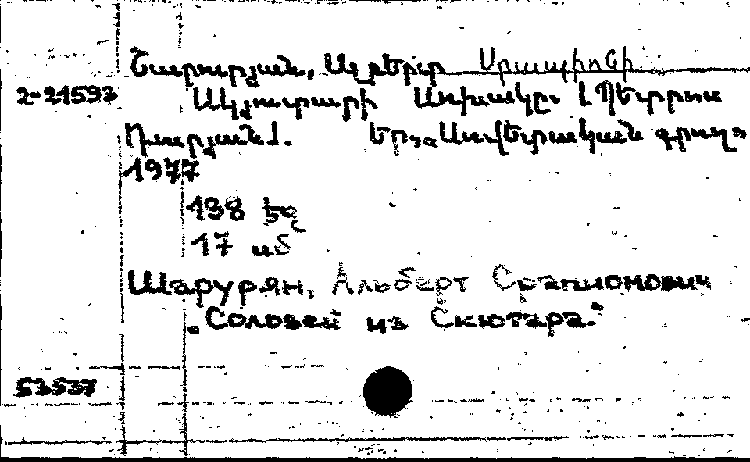 Շարուրյան, Ալբերտ Սրապիոնի
2-21593 Սկյուտարի Սոխակը։ \ Պետրոս
Դուրյան \. Եր., Սովետական գրող,
1977
138 էջ
17 սմ
Шарурян, Альберт Срапионович
„Соловей из Скютара.“
53537